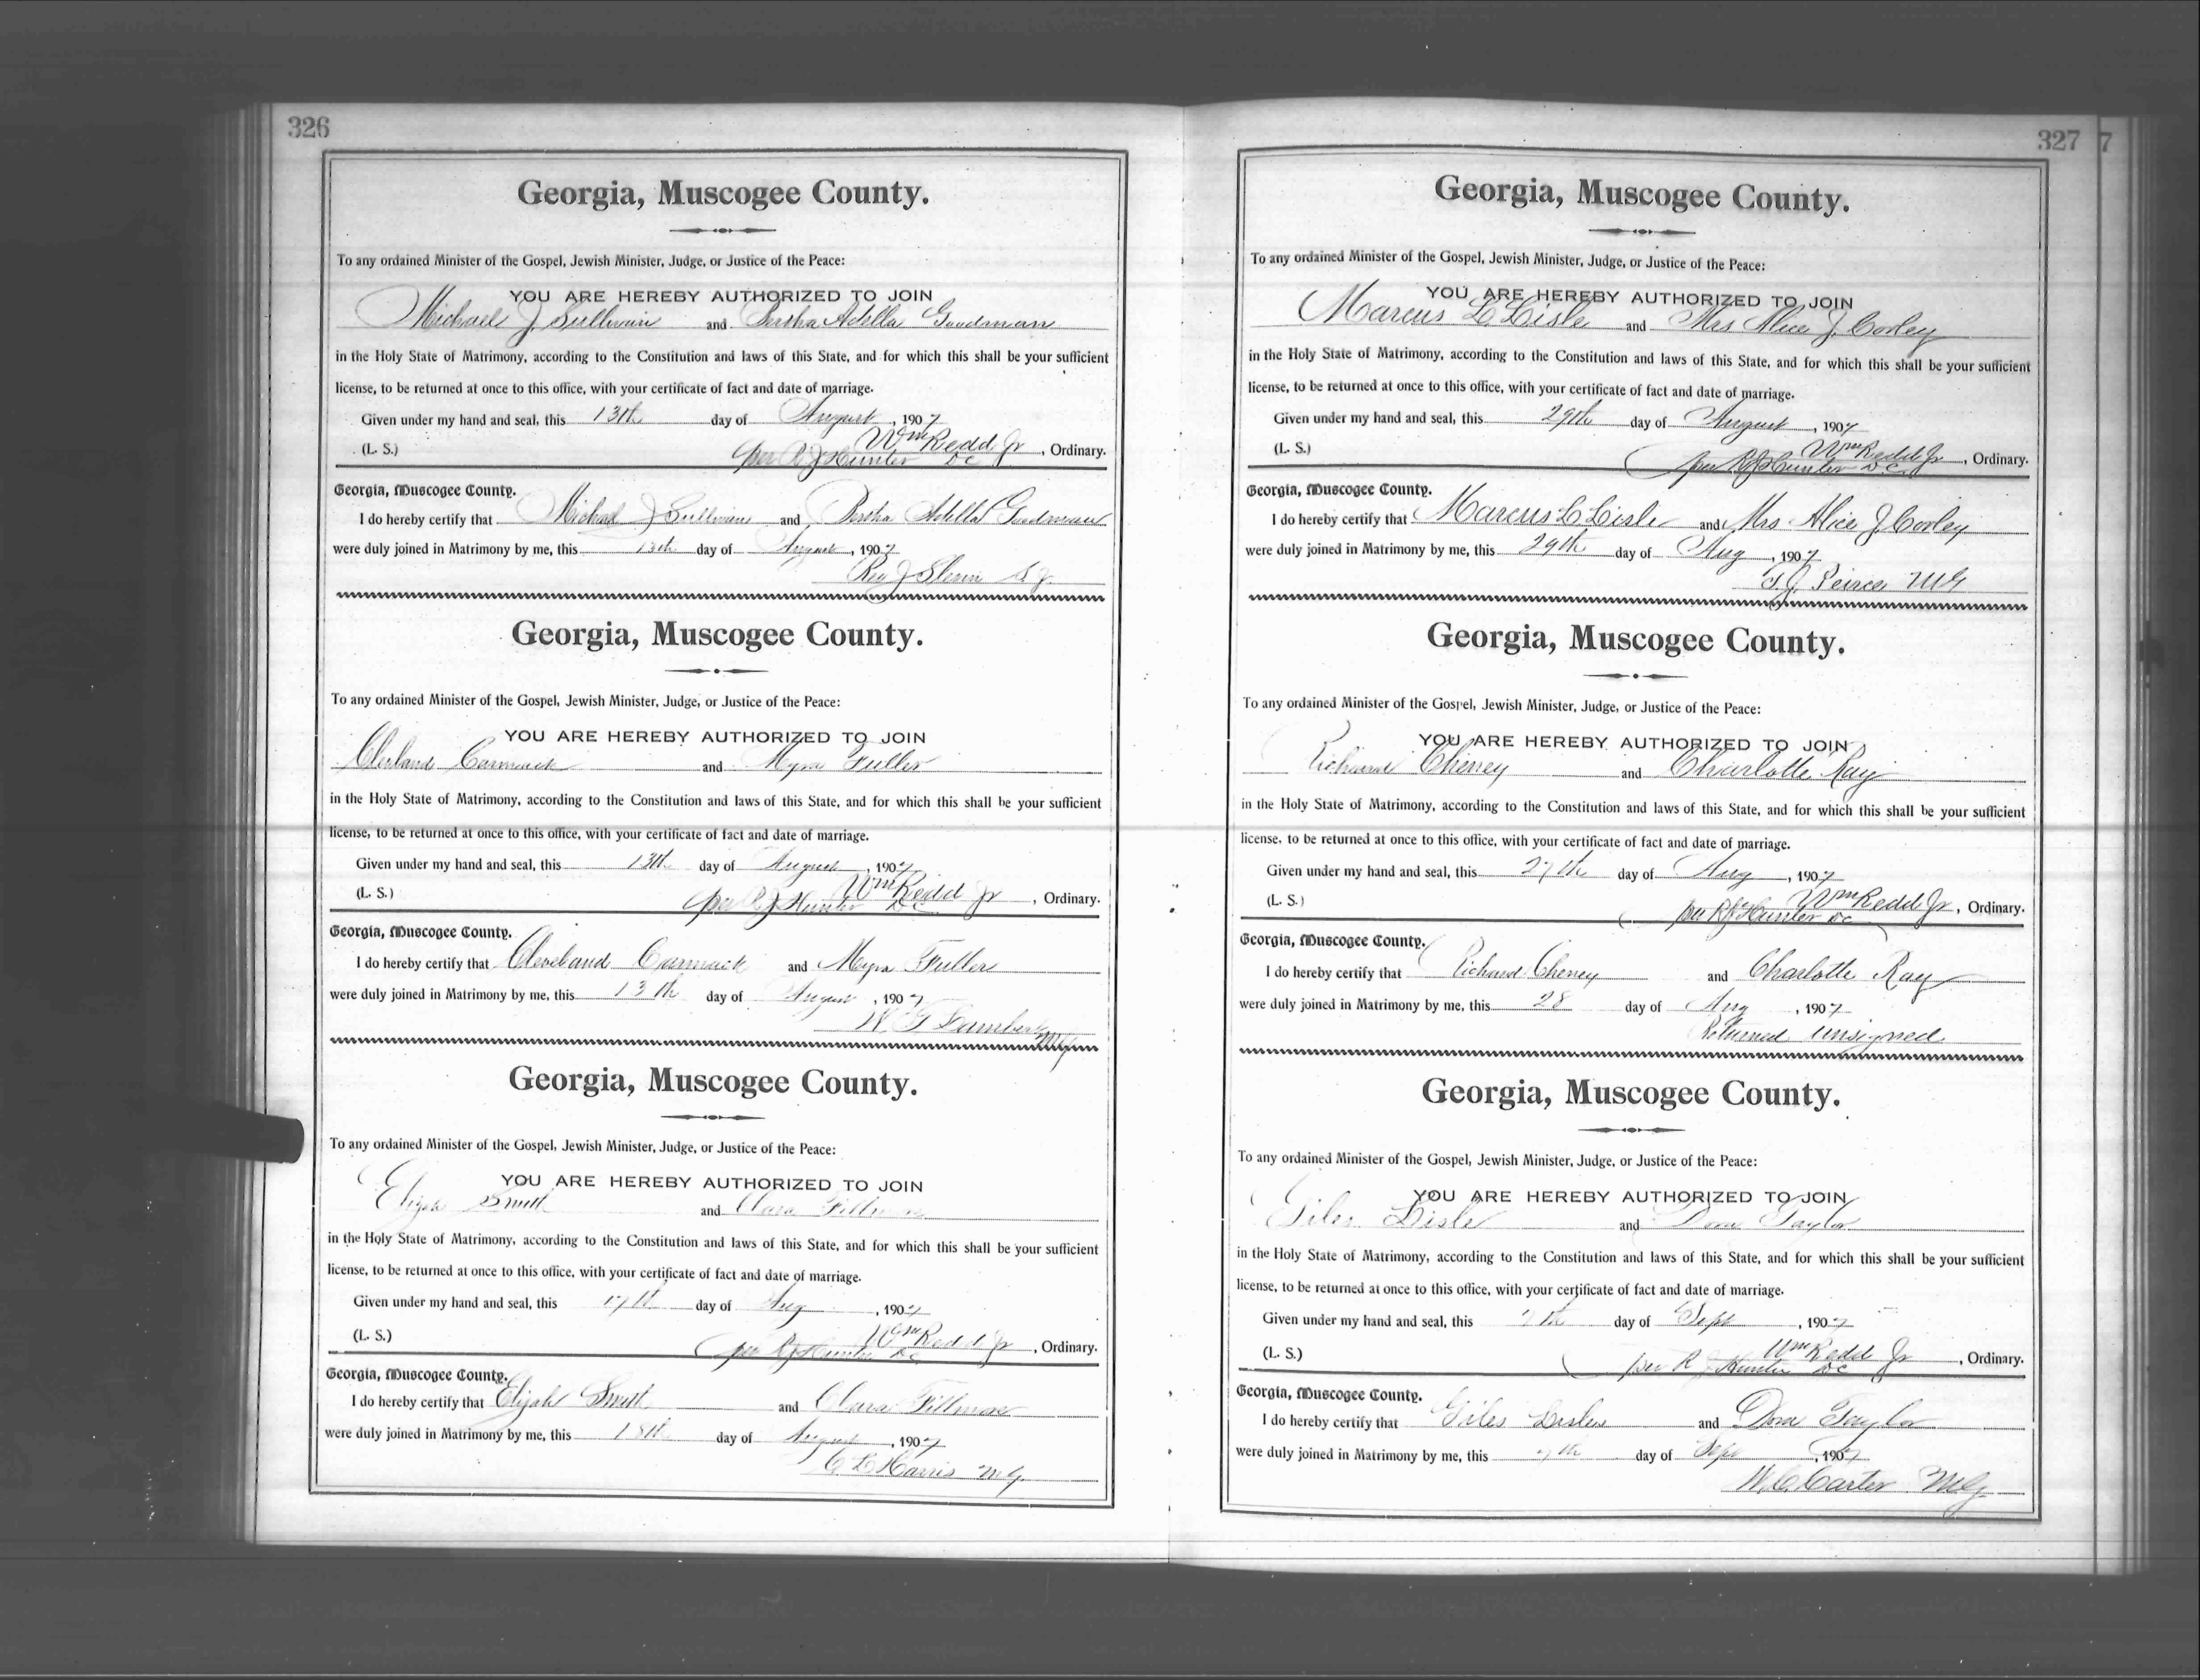 326
Georgia, Muscogee County.
To any ordained Minister of the Gospel, Jewish Minister, Judge, or Justice of the Peace:
YOU ARE HEREBY AUTHORIZED TO JOIN
Michael J. Sullivan and Bertha Adella Goodman
in the Holy State of Matrimony, according to the Constitution and laws of this State, and for which this shall be your sufficient
license, to be returned at once to this office, with your certificate of fact and date of marriage.
Given under my hand and seal, this 13th day of August, 1907
(L. S.) Wm Redd Jr, Ordinary.
per R J Hunter DC
Georgia, Muscogee County.
I do hereby certify that Michael J Sullivan and Bertha Adella Goodman
were duly joined in Matrimony by me, this 13th day of August, 1907
Rev J S.J.
Georgia, Muscogee County.
To any ordained Minister of the Gospel, Jewish Minister, Judge, or Justice of the Peace:
YOU ARE HEREBY AUTHORIZED TO JOIN
Cleveland Cormack and Myra Fuller
in the Holy State of Matrimony, according to the Constitution and laws of this State, and for which this shall be your sufficient
license, to be returned at once to this office, with your certificate of fact and date of marriage.
Given under my hand and seal, this 13th day of August, 1907
(L. S.) Wm Redd Jr, Ordinary.
per R J Hunter DC
Georgia, Muscogee County.
I do hereby certify that Cleveland Cormack and Myra Fuller
were duly joined in Matrimony by me, this 13th day of August, 1907
W MG
Georgia, Muscogee County.
To any ordained Minister of the Gospel, Jewish Minister, Judge, or Justice of the Peace:
YOU ARE HEREBY AUTHORIZED TO JOIN
Elijah Smith and Clara Fillmore
in the Holy State of Matrimony, according to the Constitution and laws of this State, and for which this shall be your sufficient
license, to be returned at once to this office, with your certificate of fact and date of marriage.
Given under my hand and seal, this 17th day of Aug, 1907
(L. S.) Wm Redd Jr, Ordinary.
per R J Hunter DC
Georgia, Muscogee County.
I do hereby certify that Elijah Smith and Clara Fillmore
were duly joined in Matrimony by me, this 18th day of August, 1907
C L Harris M.G.
327 7
Georgia, Muscogee County.
To any ordained Minister of the Gospel, Jewish Minister, Judge, or Justice of the Peace:
YOU ARE HEREBY AUTHORIZED TO JOIN
Marcus L Lisle and Mrs Alice J. Corley
in the Holy State of Matrimony, according to the Constitution and laws of this State, and for which this shall be your sufficient
license, to be returned at once to this office, with your certificate of fact and date of marriage.
Given under my hand and seal, this 29th day of August, 1907
(L. S.) Wm Redd Jr, Ordinary.
per R J Hunter D.C.
Georgia, Muscogee County.
I do hereby certify that Marcus L Lisle and Mrs Alice J Corley
were duly joined in Matrimony by me, this 29th day of Aug, 1907
T. J. Peirce MG
Georgia, Muscogee County.
To any ordained Minister of the Gospel, Jewish Minister, Judge, or Justice of the Peace:
YOU ARE HEREBY AUTHORIZED TO JOIN
Richard Cheney and Charlotte Ray
in the Holy State of Matrimony, according to the Constitution and laws of this State, and for which this shall be your sufficient
license, to be returned at once to this office, with your certificate of fact and date of marriage.
Given under my hand and seal, this 27th day of Aug, 1907
(L. S.) Wm Redd Jr, Ordinary.
per R J Hunter DC
Georgia, Muscogee County.
I do hereby certify that Richard Cheney and Charlotte Ray
were duly joined in Matrimony by me, this 28 day of Aug, 1907
Returned unsigned
Georgia, Muscogee County.
To any ordained Minister of the Gospel, Jewish Minister, Judge, or Justice of the Peace:
YOU ARE HEREBY AUTHORIZED TO JOIN
Giles Lisle and Dora Taylor
in the Holy State of Matrimony, according to the Constitution and laws of this State, and for which this shall be your sufficient
license, to be returned at once to this office, with your certificate of fact and date of marriage.
Given under my hand and seal, this 7th day of Sept, 1907
(L. S.) Wm Redd Jr, Ordinary.
per R J Hunter DC
Georgia, Muscogee County.
I do hereby certify that Giles Lisles and Dora Taylor
were duly joined in Matrimony by me, this 7th day of Sept, 1907
W. C. Carter MG